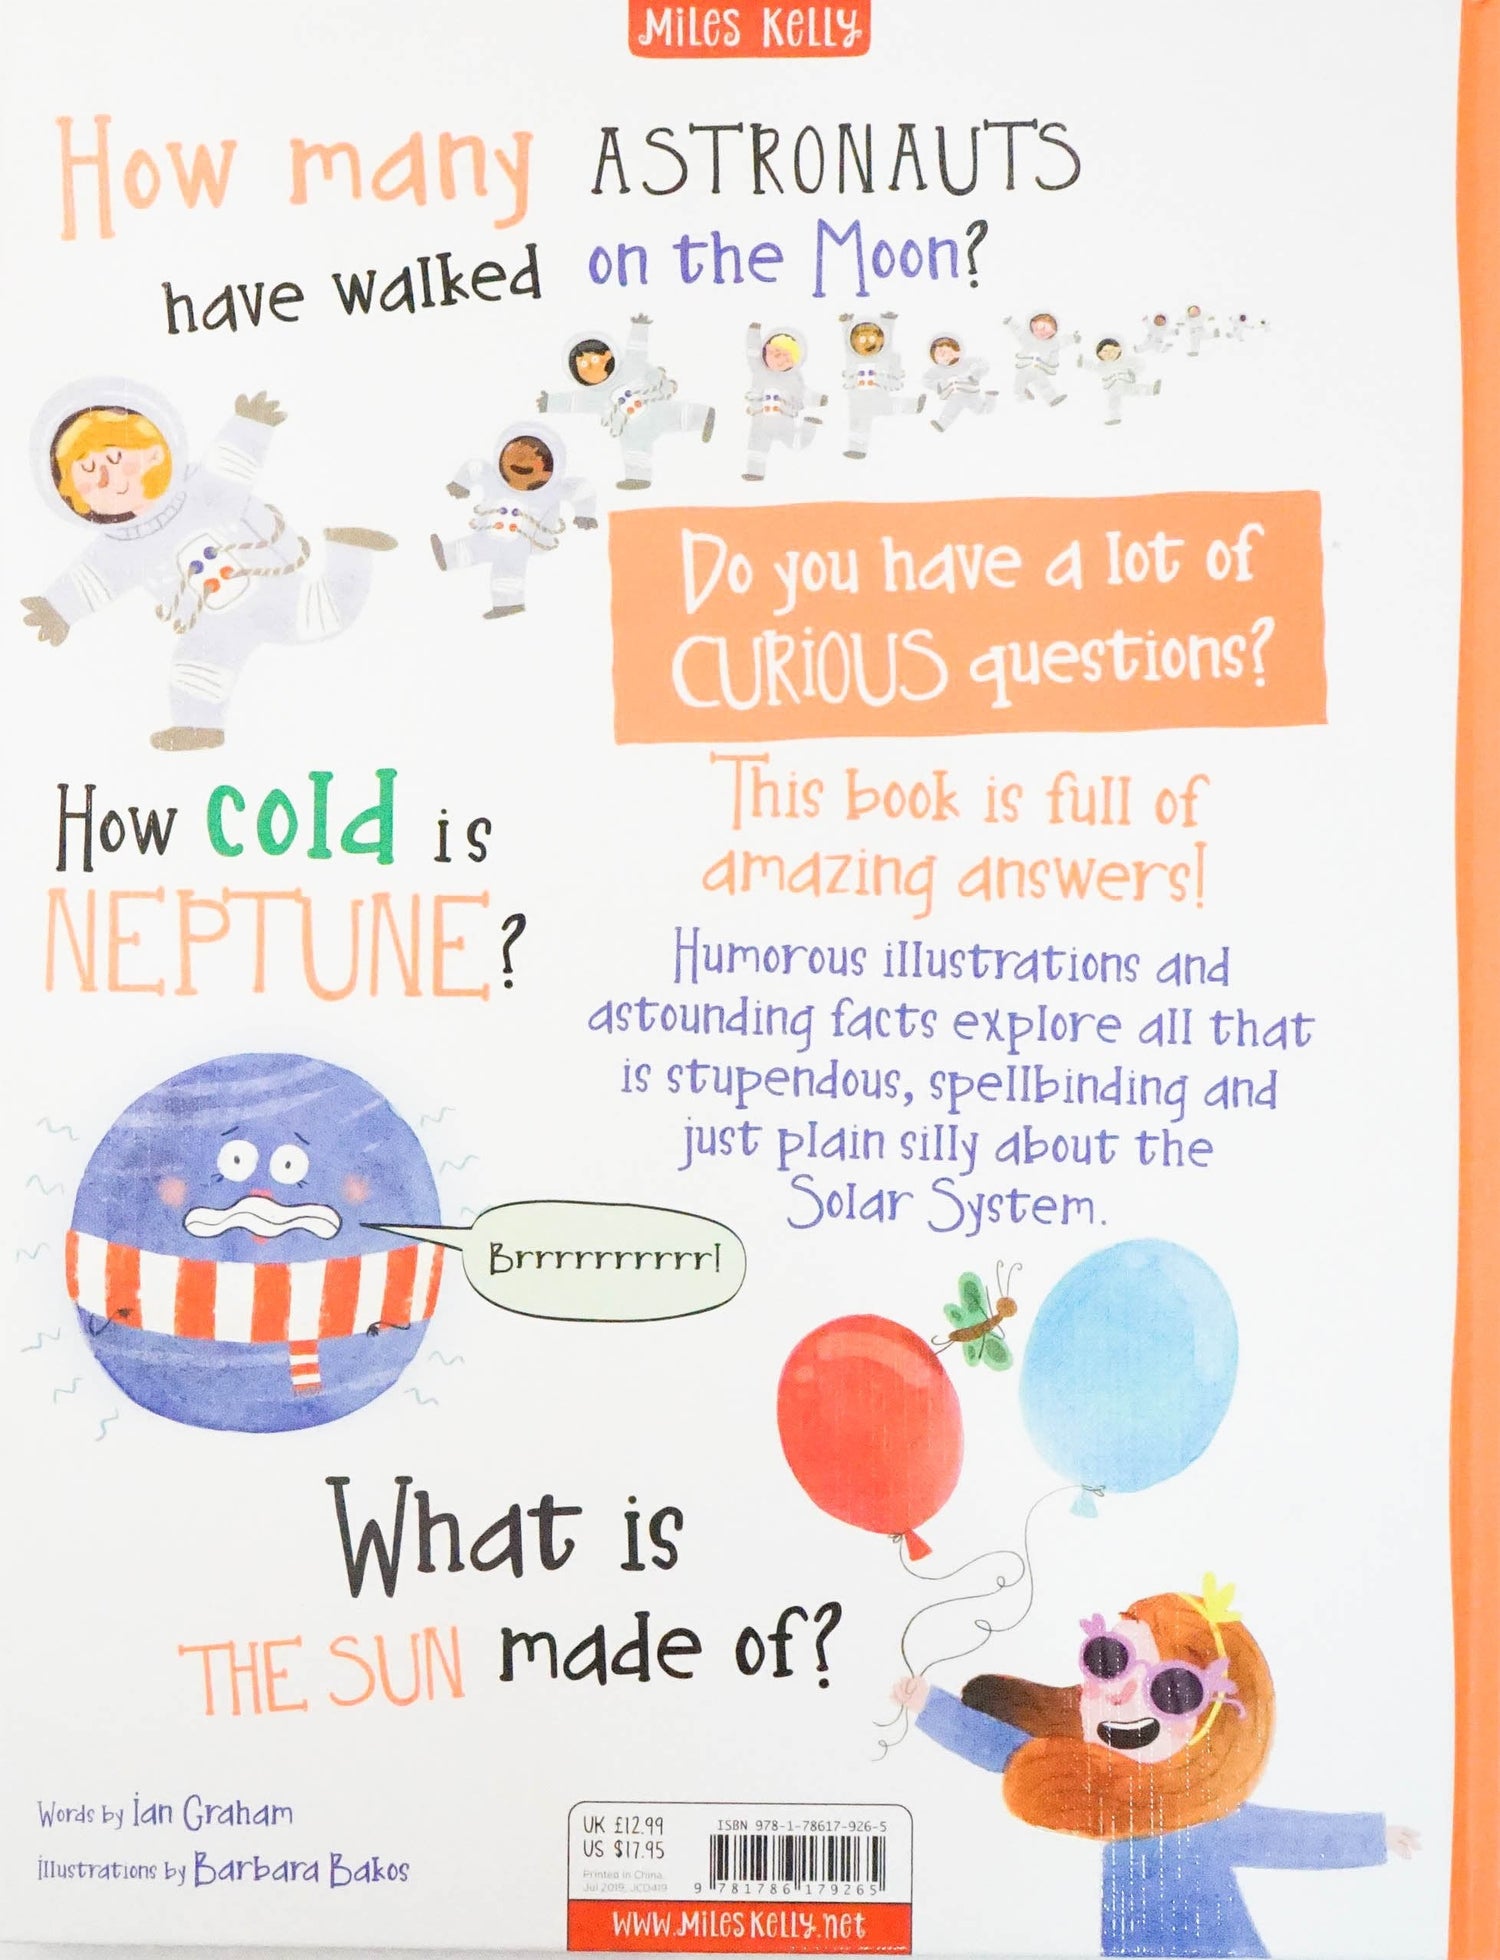 Miles Kelly
How many ASTRONAUTS
have walked on the Moon?
Do you have a lot of
CURiOUS questions?
How cold is
NEPTUNE?
This book is full of
amazing answers!
Humorous illustrations and
astounding facts explore all that
is stupendous, spellbinding and
just plain silly about the
Solar System.
Brrrrrrrrrrr!
What is
THE SUN made of?
Words by Ian Graham
illustrations by Barbara Bakos
UK £12.99
US $17.95
Printed in China.
Jul 2019, JC0419
ISBN 978-1-78617-926-5
9 781786 179265
www.MilesKelly.net